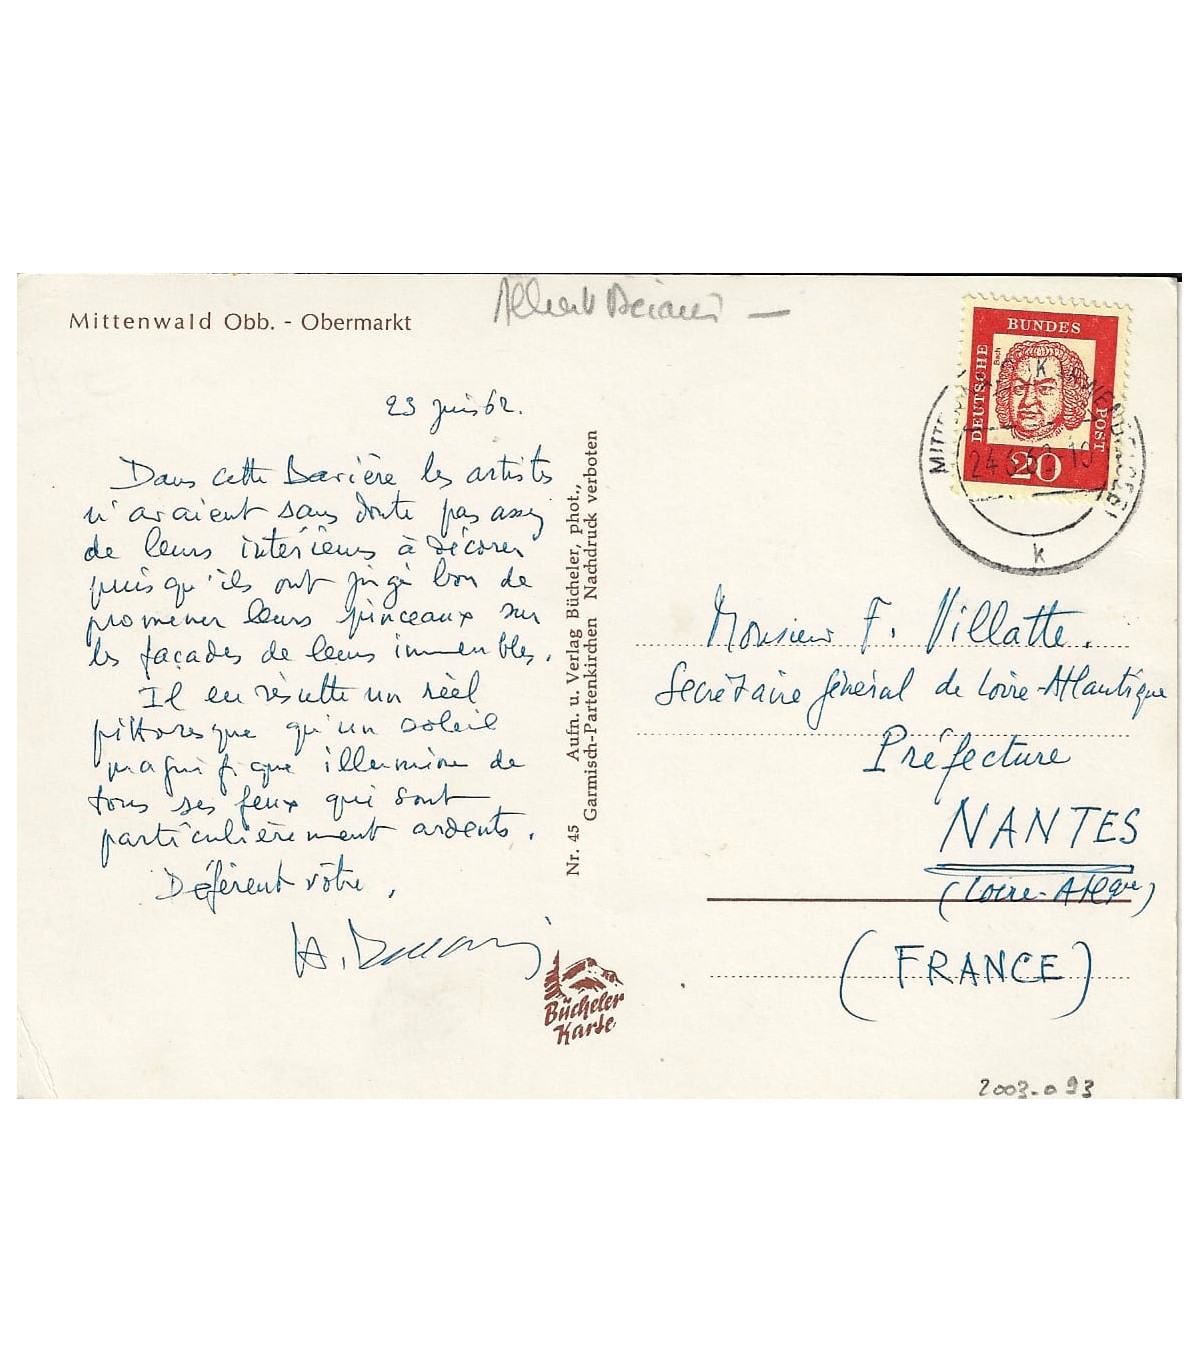 Mittenwald Obb. - Obermarkt
Albert
23 juin 62.
Dans cette Bavière les artistes
n'avaient sans doute pas assez
de leurs intérieurs à décorer
puisqu'ils ont jugé bon de
promener leurs pinceaux sur
les façades de leurs immeubles.
Il en résulte un réel
pittoresque qu'un soleil
magnifique illumine de
tous ses feux qui sont
particulièrement ardents.
Déférent vôtre,
Nr. 45 Aufn. u. Verlag Bücheler, phot.,
Garmisch-Partenkirchen Nachdruck verboten
Bücheler
Karte
DEUTSCHE
BUNDES
POST
Bach
20
k
Monsieur F. Villatte.
Secrétaire général de Loire-Atlantique
Préfecture
NANTES
(Loire-Atlque)
(FRANCE)
2003-093